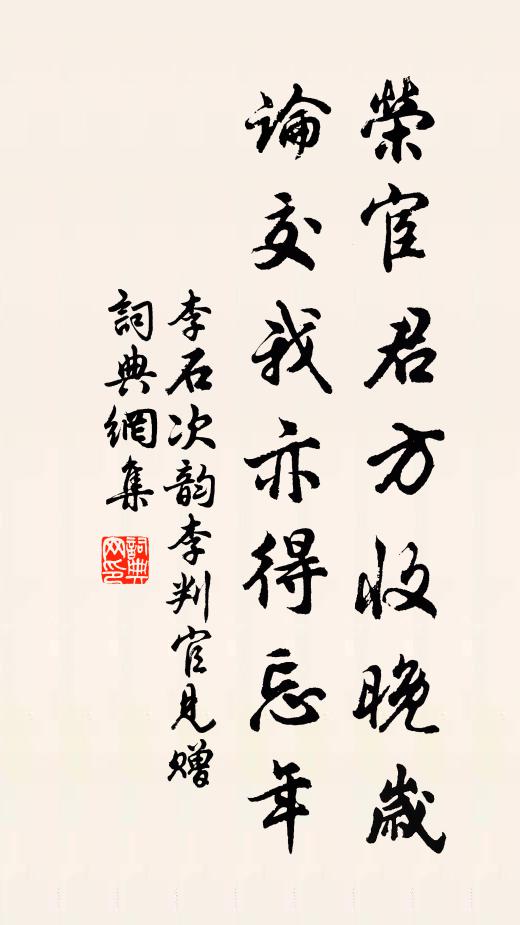 榮宦君方收晚歲
論交我亦得忘年
李石次韵李判官見贈
詞典網集
詞典网印